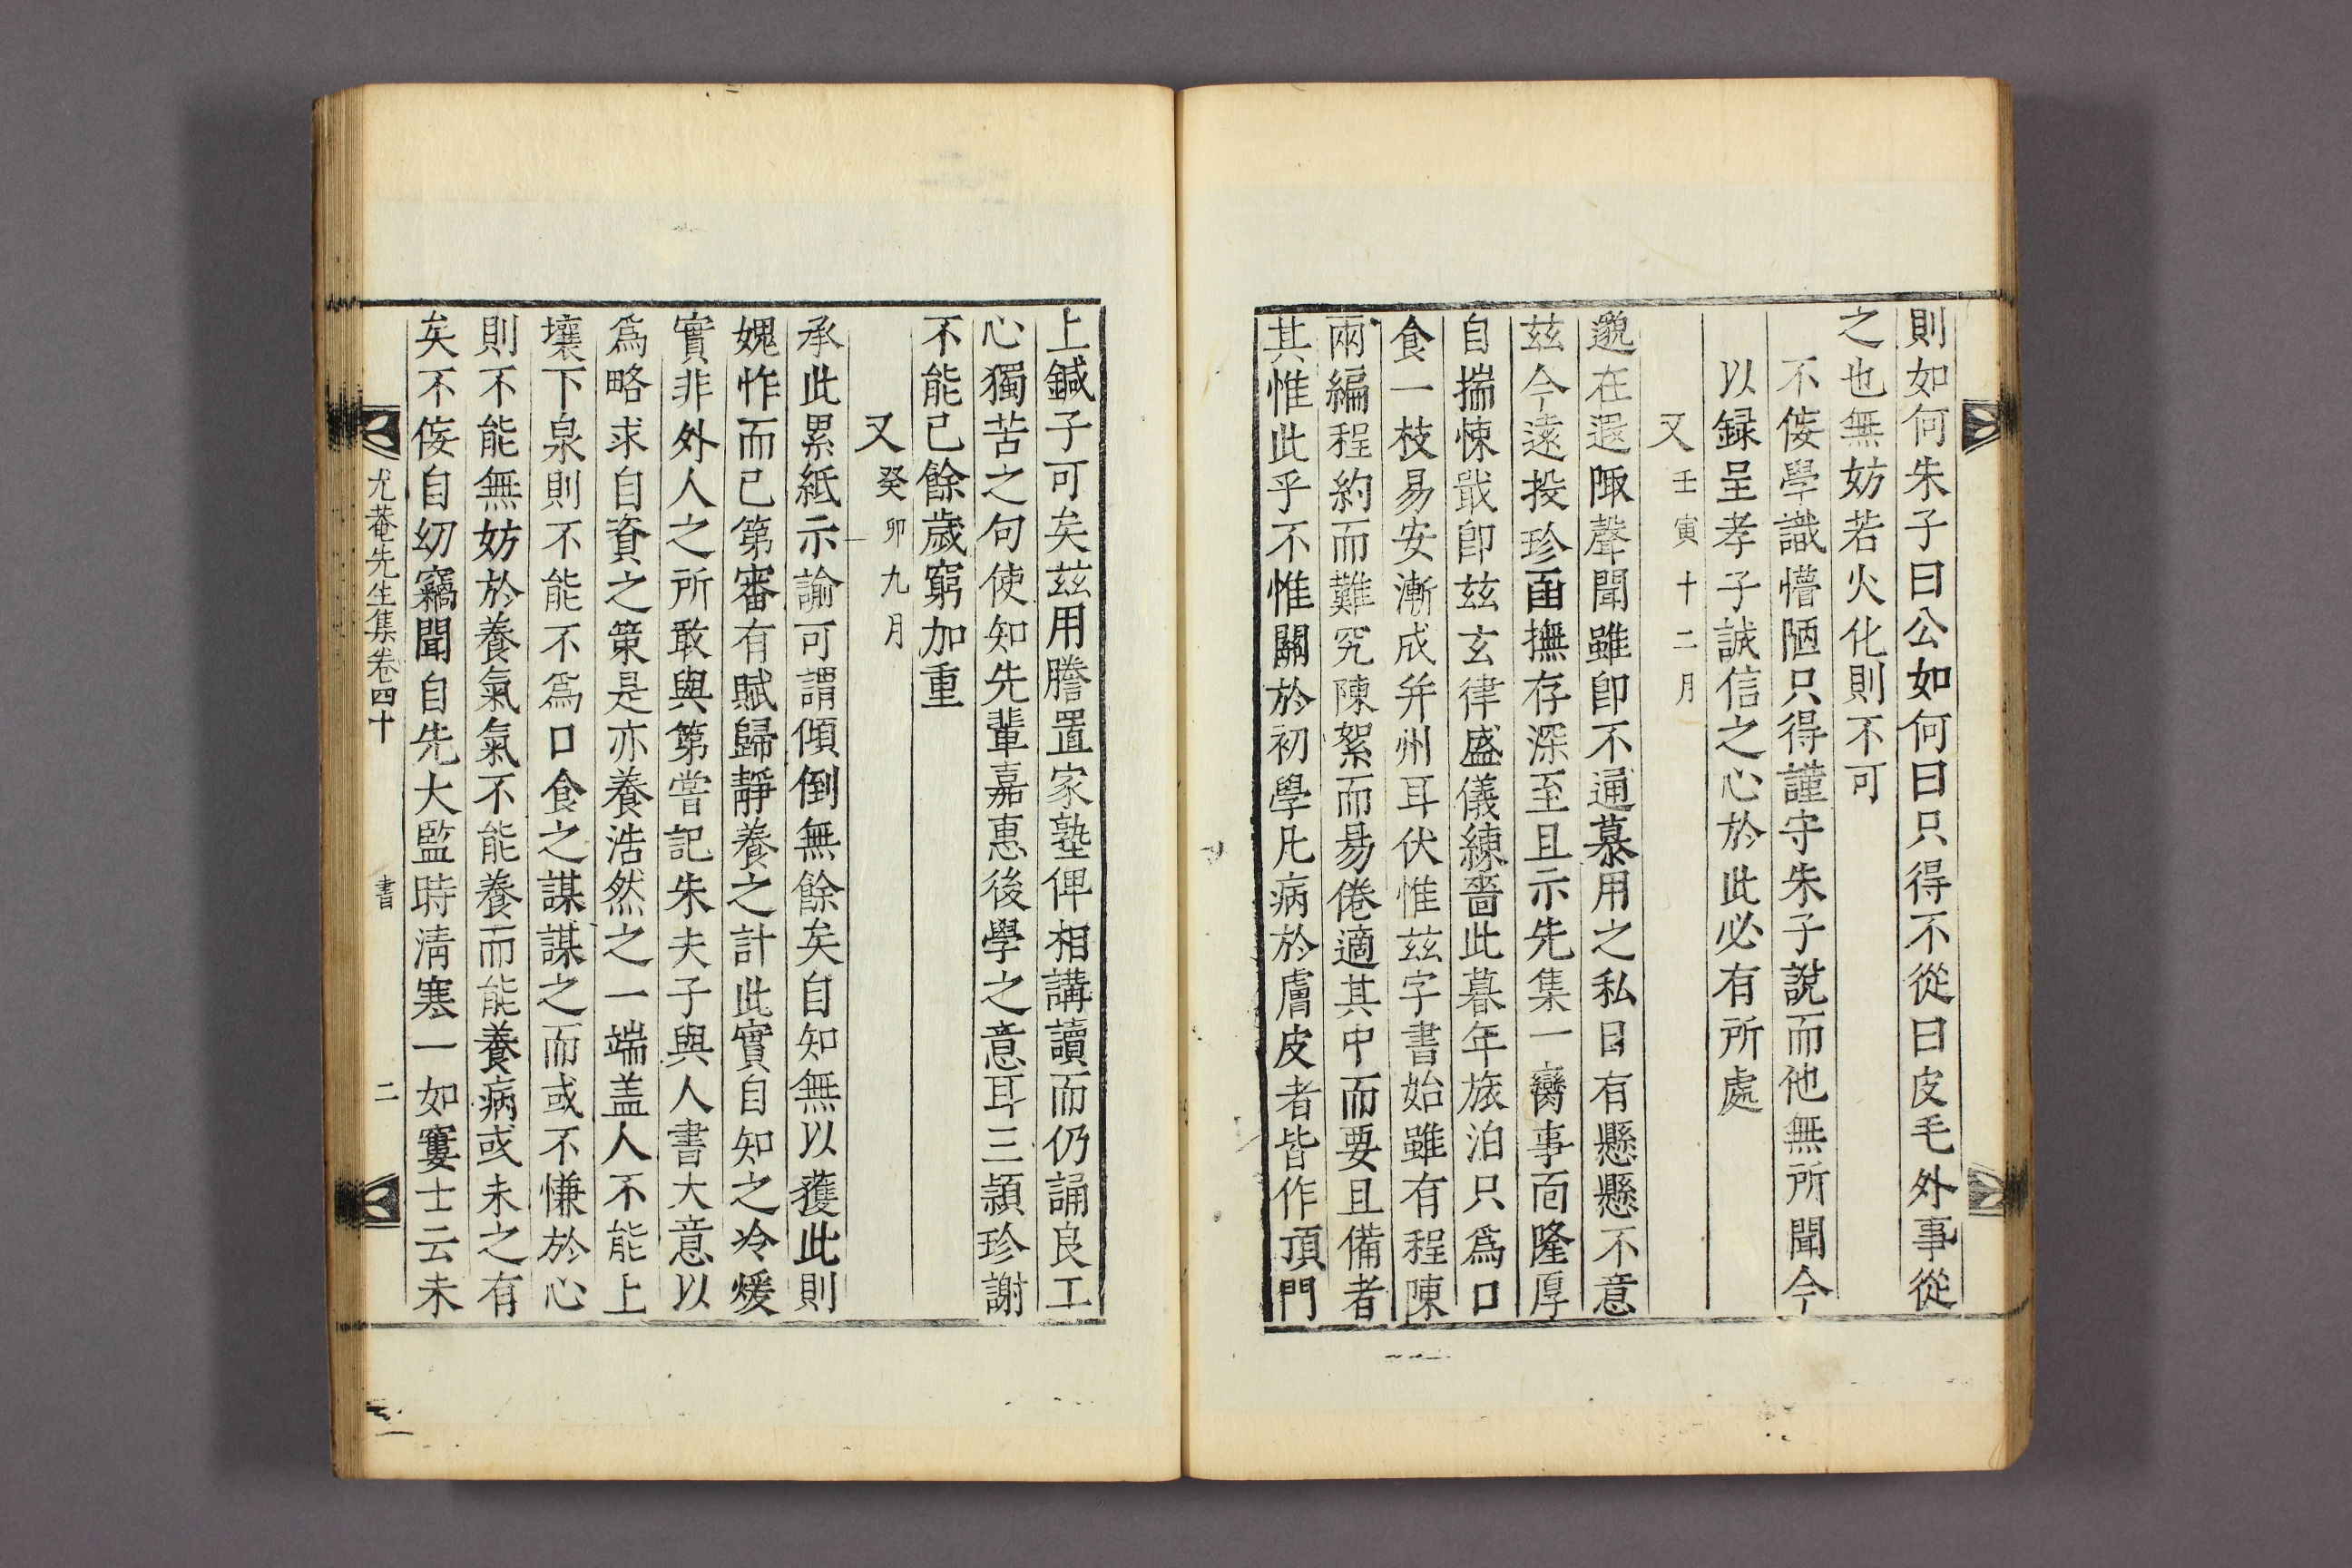 則如何朱子曰公如何曰只得不從曰皮毛外事從
之也無妨若火化則不可
不侫學識懵陋只得謹守朱子說而他無所聞今
以録呈孝子誠信之心於此必有所處
又壬寅十二月
邈在遐陬聲聞雖卽不通慕用之私日有懸懸不意
玆今遠投珍函撫存深至且示先集一臠事而隆厚
自揣悚戢卽玆玄律盛儀練嗇此暮年旅泊只爲口
食一枝易安漸成幷州耳伏惟玆字書始雖有程陳
兩編程約而難究陳絮而易倦適其中而要且備者
其惟此乎不惟關於初學凡病於膚皮者皆作頂門
上鍼子可矣玆用謄置家塾俾相講讀而仍誦良工
心獨苦之句使知先輩嘉惠後學之意耳三穎珍謝
不能已餘歲窮加重
又癸卯九月
承此累紙示諭可謂傾倒無餘矣自知無以獲此則
媿怍而已第審有賦歸靜養之計此實自知之冷煖
實非外人之所敢與第嘗記朱夫子與人書大意以
爲略求自資之策是亦養浩然之一端盖人不能上
壤下泉則不能不爲口食之謀謀之而或不慊於心
則不能無妨於養氣氣不能養而能養病或未之有
矣不侫自幼竊聞自先大監時淸寒一如寠士云未
尤菴先生集卷四十 書 二